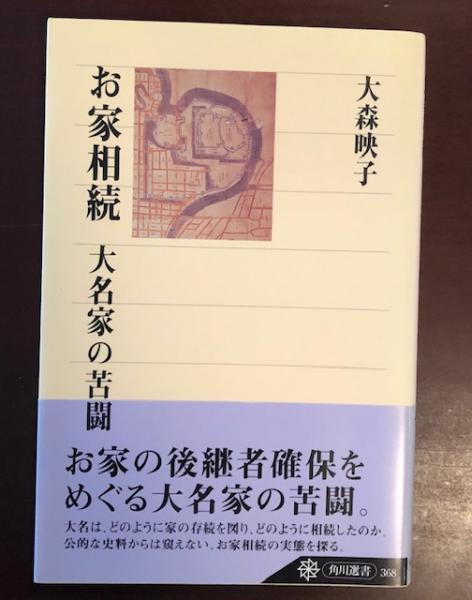 大森映子
お家相続 大名家の苦闘
お家の後継者確保を
めぐる大名家の苦闘。
大名は、どのように家の存続を図り、どのように相続したのか。
公的な史料からは窺えない、お家相続の実態を探る。
角川選書 368